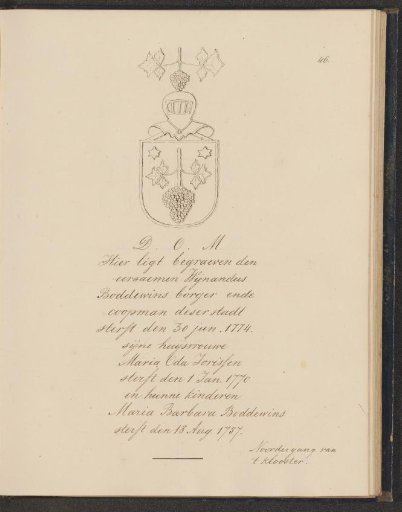 46.
D. O. M
Hier ligt begraeven den
eersaemen Wijnandus
Boddewins borger ende
coopman deser stadt
sterft den 30 jun. 1774.
sijne huysvrouwe
Maria Oda Jorissen
sterft den 1 Jan. 1770
en hunne kinderen
Maria Barbara Boddewins
sterft den 18. Aug. 1787.
Noordergang van
't klooster.